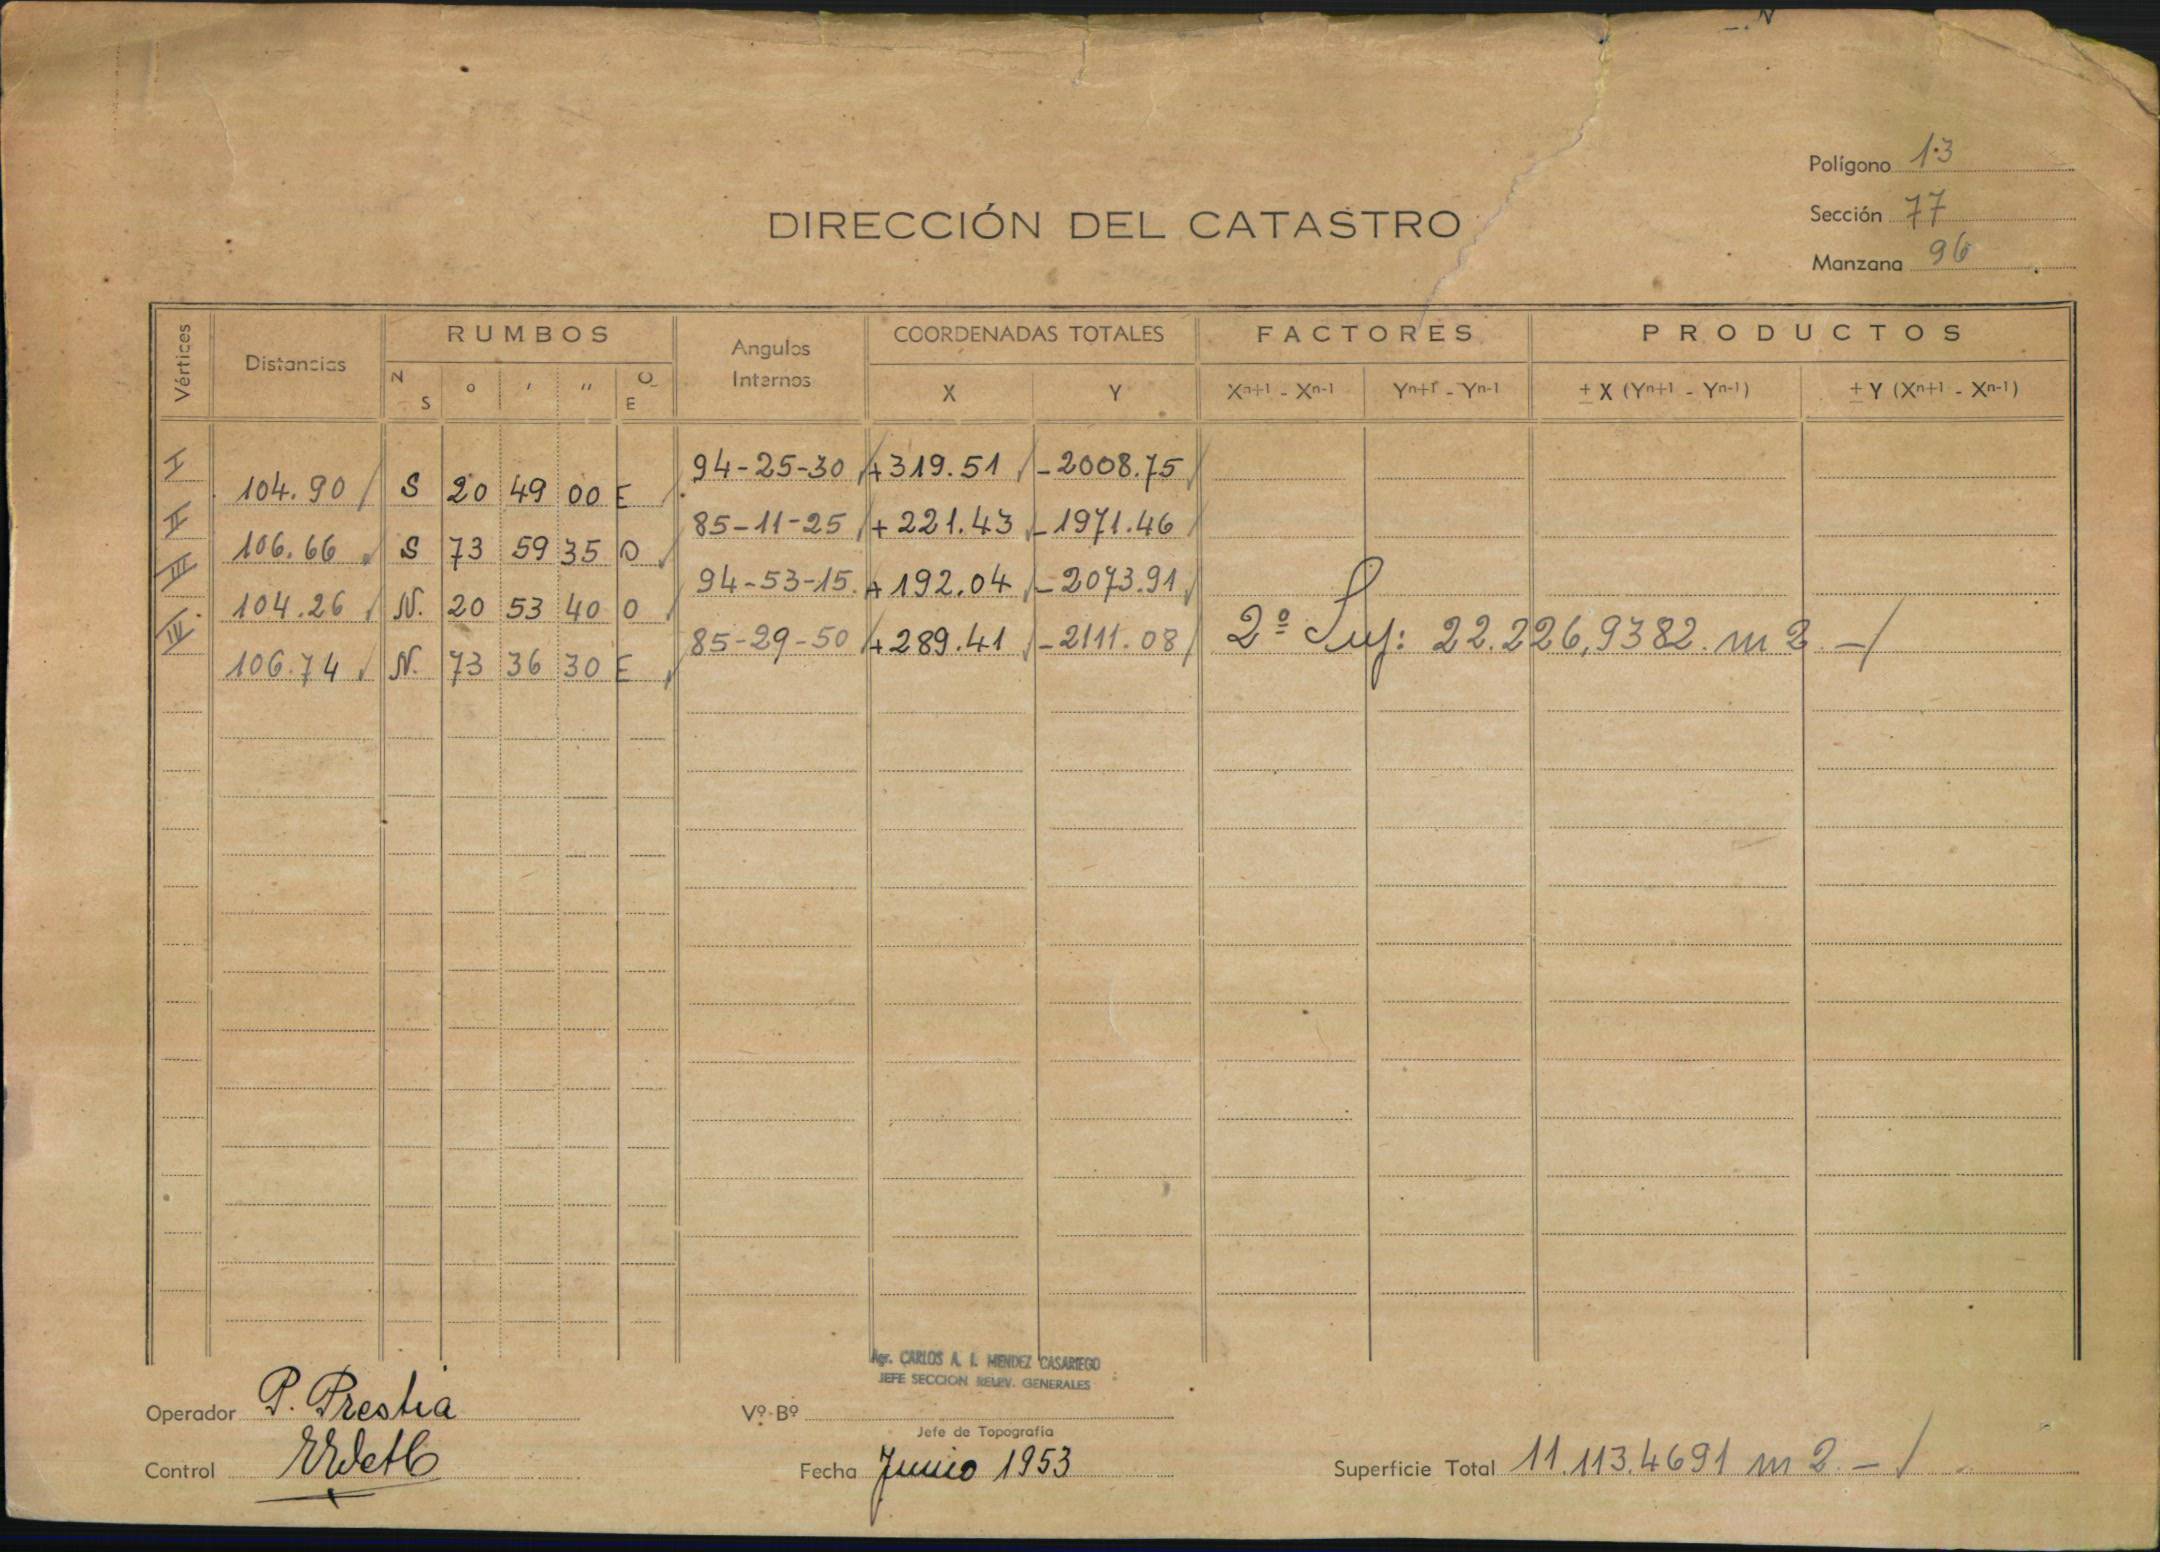 Polígono 13
Sección 77
Manzana 96
DIRECCIÓN DEL CATASTRO
Vértices Distancias RUMBOS Angulos Internos COORDENADAS TOTALES FACTORES PRODUCTOS
N S ° ' " O E X Y Xn+1 - Xn-1 Yn+1 - Yn-1 ± X (Yn+1 - Yn-1) ± Y (Xn+1 - Xn-1)
I 94-25-30 +319.51 -2008.75
104.90 S 20 49 00 E
II 85-11-25 +221.43 -1971.46
106.66 S 73 59 35 O
III 94-53-15 +192.04 -2073.91
104.26 N. 20 53 40 O
IV 85-29-50 +289.41 -2111.08 2º Sup: 22.226,9382. m2.-/
106.74 N. 73 36 30 E
Agr. CARLOS A. I. MENDEZ CASARIEGO
JEFE SECCION RELEV. GENERALES
Operador P. Prestia Vº Bº
Jefe de Topografía
Control Fecha Junio 1953 Superficie Total 11.113.4691 m2.-/